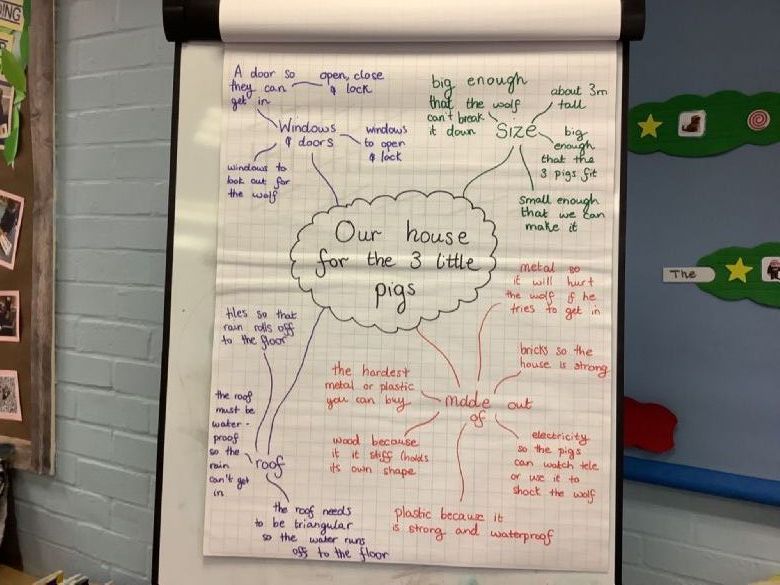 ING
A door so
they can
get in
open, close
& lock
Windows
& doors
windows
to open
& lock
windows to
look out for
the wolf
big enough
that the wolf
can't break
it down
Size
about 3m
tall
big
enough
that the
3 pigs fit
small enough
that we can
make it
Our house
for the 3 little
pigs
The
metal so
it will hurt
the wolf if he
tries to get in
tiles so that
rain rolls off
to the floor
bricks so the
house is strong
the hardest
metal or plastic
you can buy
made out
of
the roof
must be
water-
proof
so the
rain
can't get
in
roof
wood because
it it stiff (holds
its own shape
electricity
so the pigs
can watch tele
or use it to
shock the wolf
plastic because it
is strong and waterproof
the roof needs
to be triangular
so the water runs
off to the floor